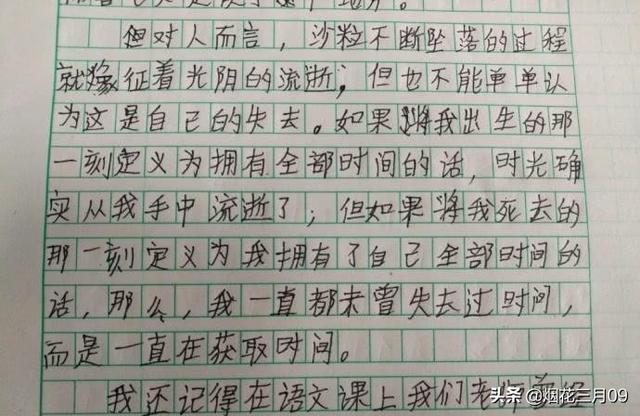 但对人而言，沙粒不断坠落的过程
就像征着光阴的流逝；但也不能单单认
为这是自己的失去。如果将我出生的那
一刻定义为拥有全部时间的话，时光确
实从我手中流逝了；但如果将我死去的
那一刻定义为我拥有了自己全部时间的
话，那么，我一直都未曾失去过时间，
而是一直在获取时间。
我还记得在语文课上我们老师
头条 @烟花三月09